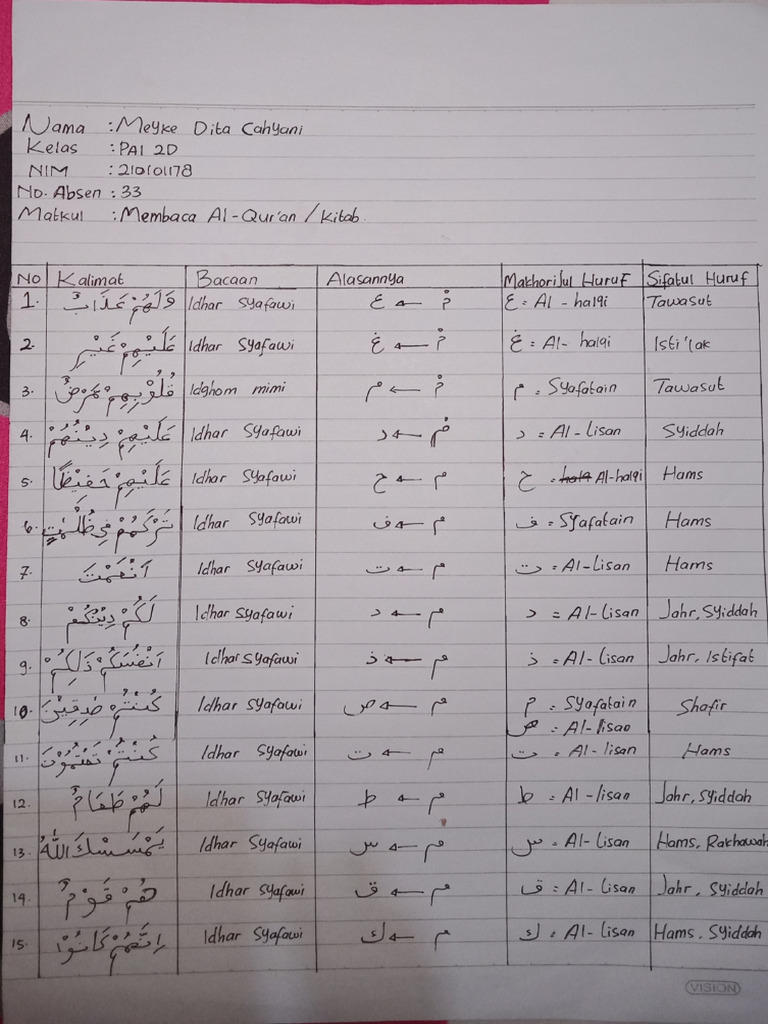 Nama : Meyke Dita Cahyani
Kelas : PAI 2D
NIM : 210101178
No. Absen : 33
Matkul : Membaca Al-Qur'an / Kitab.
No Kalimat Bacaan Alasannya Makhorijul Huruf Sifatul Huruf
1. وَلَهُمْ عَذَابٌ Idhar Syafawi مْ ← ع ع = Al - halqi Tawasut
2. عَلَيْهِمْ غَيْرِ Idhar Syafawi مْ ← غ غ = Al- halqi Isti'lak
3. قُلُوْبِهِمْ مَرَضٌ Idghom mimi مْ ← م م = Syafatain Tawasut
4. عَلَيْهِمْ دِيْنُهُمْ Idhar Syafawi مْ ← د د = Al-Lisan Syiddah
5. عَلَيْهِمْ حَفِيْظًا Idhar Syafawi م ← ح ح = Al-halqi Hams
6. تَرَكَهُمْ فِيْ ظُلُمٰتٍ Idhar Syafawi م ← ف ف = Syafatain Hams
7. اَنْعَمْتَ Idhar Syafawi م ← ت ت = Al-Lisan Hams
8. لَكُمْ دِيْنُكُمْ Idhar Syafawi م ← د د = Al-Lisan Jahr, Syiddah
9. اَنْفُسَكُمْ ذَلِكُمْ Idhar Syafawi م ← ذ ذ = Al-Lisan Jahr, Istifat
10. كُنْتُمْ صٰدِقِيْنَ Idhar Syafawi م ← ص م = Syafatain Shafir
ص = Al-lisan
11. كُنْتُمْ تَكْتُمُوْنَ Idhar Syafawi م ← ت ت = Al-lisan Hams
12. لَهُمْ طَعَامٌ Idhar Syafawi م ← ط ط = Al-lisan Jahr, Syiddah
13. يَمْسَسْكَ اللّٰهُ Idhar Syafawi م ← س س = Al-Lisan Hams, Rakhawah
14. هُمْ قَوْمٌ Idhar Syafawi م ← ق ق = Al-Lisan Jahr, Syiddah
15. اِنَّهُمْ كَانُوْا Idhar Syafawi م ← ك ك = Al-Lisan Hams, Syiddah
VISION